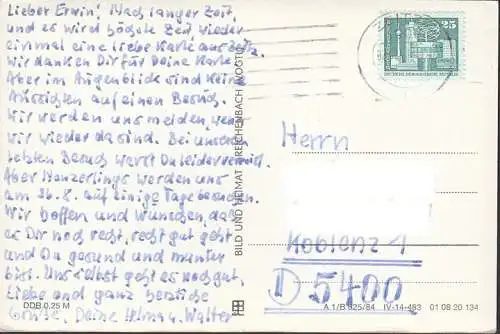 Lieber Erwin! Nach langer Zeit,
und es wird höchste Zeit, wieder
einmal eine liebe Karte aus Zeitz.
Wir danken Dir für Deine Karte.
Aber im Augenblick sind keine
Aussichten auf einen Besuch.
Wir werden uns melden, wenn
wir wieder da sind. Bei unserem
letzten Besuch warst Du leider verreist.
Aber werden uns
am 26.8. auf einige Tage besuchen.
Wir hoffen und wünschen, daß
es Dir noch recht, recht gut geht
und Du gesund und munter
bist. Uns selbst geht es noch gut.
Liebe und ganz herzliche
Grüße, Deine Helma u. Walter
DDB 0,25 M
BILD UND HEIMAT REICHENBACH (VOGTL)
25
DEUTSCHE DEMOKRATISCHE REPUBLIK
Herrn
Koblenz 1
D 5400
A 1/B 625/84 IV-14-483 01 08 20 134